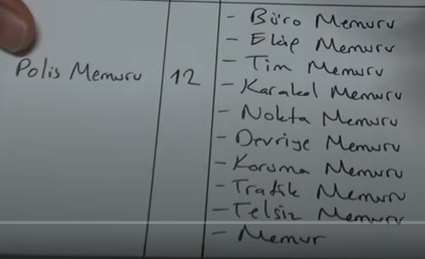 Polis Memuru
12
- Büro Memuru
- Ekip Memuru
- Tim Memuru
- Karakol Memuru
- Nokta Memuru
- Devriye Memuru
- Koruma Memuru
- Trafik Memuru
- Telsiz Memuru
- Memur